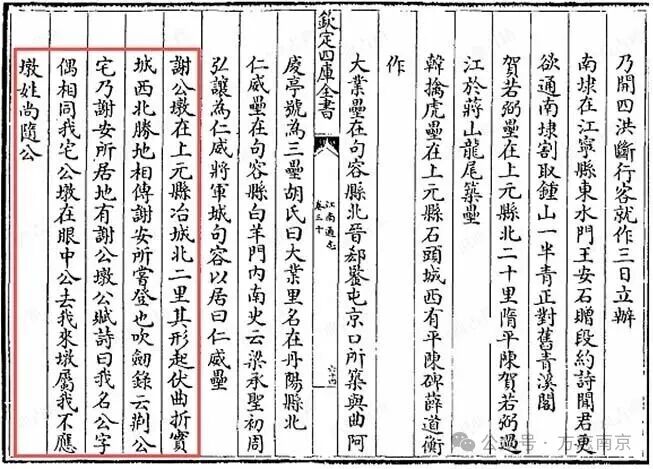 乃開四洪斷行客就作三日立辦
南埭在江寧縣東水門王安石贈段約詩聞君更
欲通南埭割取鍾山一半青正對舊青溪閣
賀若弼壘在上元縣北二十里隋平陳賀若弼過
江於蔣山龍尾築壘
韓擒虎壘在上元縣石頭城西有平陳碑薛道衡
作
大業壘在句容縣北晉郄鑒屯京口所築與曲阿
欽定四庫全書
江南通志
卷三十
慶亭號為三壘胡氏曰大業里名在丹陽縣北
仁威壘在句容縣白羊門內南史云梁承聖初周
弘讓為仁威將軍城句容以居曰仁威壘
謝公墩在上元縣冶城北二里其形起伏曲折實
城西北勝地相傳謝安所嘗登也吹劍錄云荆公
宅乃謝安所居地有謝公墩公賦詩曰我名公字
偶相同我宅公墩在眼中公去我來墩屬我不應
墩姓尚隨公
公众号·方志南京